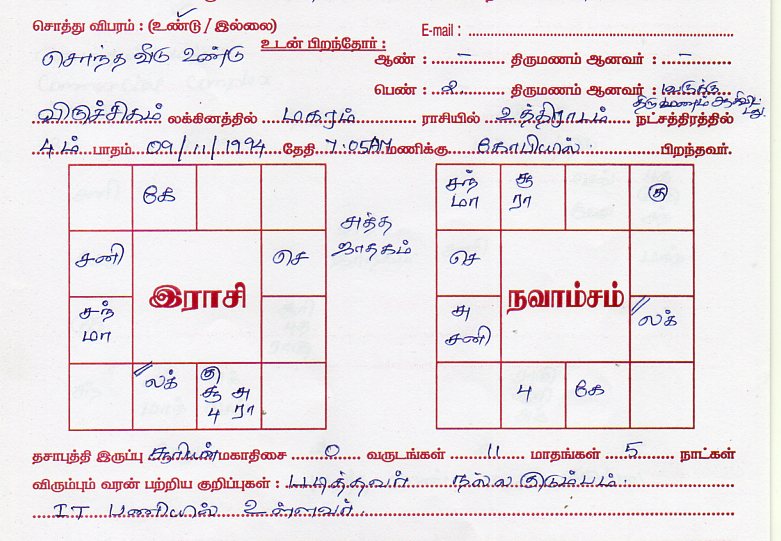 சொத்து விபரம் : (உண்டு / இல்லை) E-mail :
சொந்த வீடு உண்டு உடன் பிறந்தோர் : ஆண் : – திருமணம் ஆனவர் : –
பெண் : 2 திருமணம் ஆனவர் : ஒருவருக்கு திருமணம் ஆகிவிட்டது.
விருச்சிகம் லக்கினத்தில் மகரம் ராசியில் உத்திராடம் நட்சத்திரத்தில்
4ம் பாதம் 09/11/1994 தேதி 7.05AM மணிக்கு கோபியில் பிறந்தவர்.
கே
சனி
செ
சந்
மா
லக்
கு
சூ சு
4 ரா
இராசி
சுத்த
ஜாதகம்
சந்
மா
சூ
ரா
கு
செ
சு
சனி
லக்
4
கே
நவாம்சம்
தசாபுத்தி இருப்பு சூரியன் மகாதிசை 0 வருடங்கள் 11 மாதங்கள் 5 நாட்கள்
விரும்பும் வரன் பற்றிய குறிப்புகள் : படித்தவர் நல்ல குடும்பம்.
IT பணியில் உள்ளவர்.